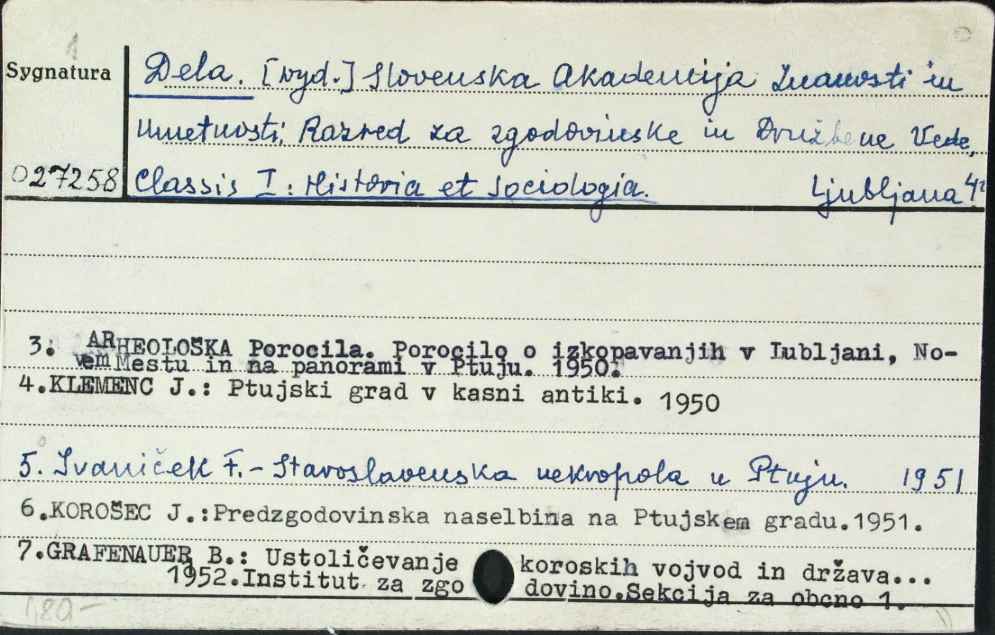 1
Sygnatura
Dela. [wyd.] Slovenska Akademija Znanosti in
Umetnosti. Razred za zgodovinske in Družbene Vede,
027258
Classis I: Historia et Sociologia. Ljubljana
3. ARHEOLOŠKA Porocila. Porocilo o izkopavanjih v Lubljani, No-
vem Mestu in na panorami v Ptuju. 1950.
4.KLEMENC J.: Ptujski grad v kasni antiki. 1950
5. Ivaniček F. - Staroslavenska nekropola u Ptuju. 1951
6.KOROŠEC J.:Predzgodovinska naselbina na Ptujskem gradu.1951.
7.GRAFENAUER B.: Ustoličevanje koroskih vojvod in država...
1952.Institut za zgodovino.Sekcija za obcno 1.